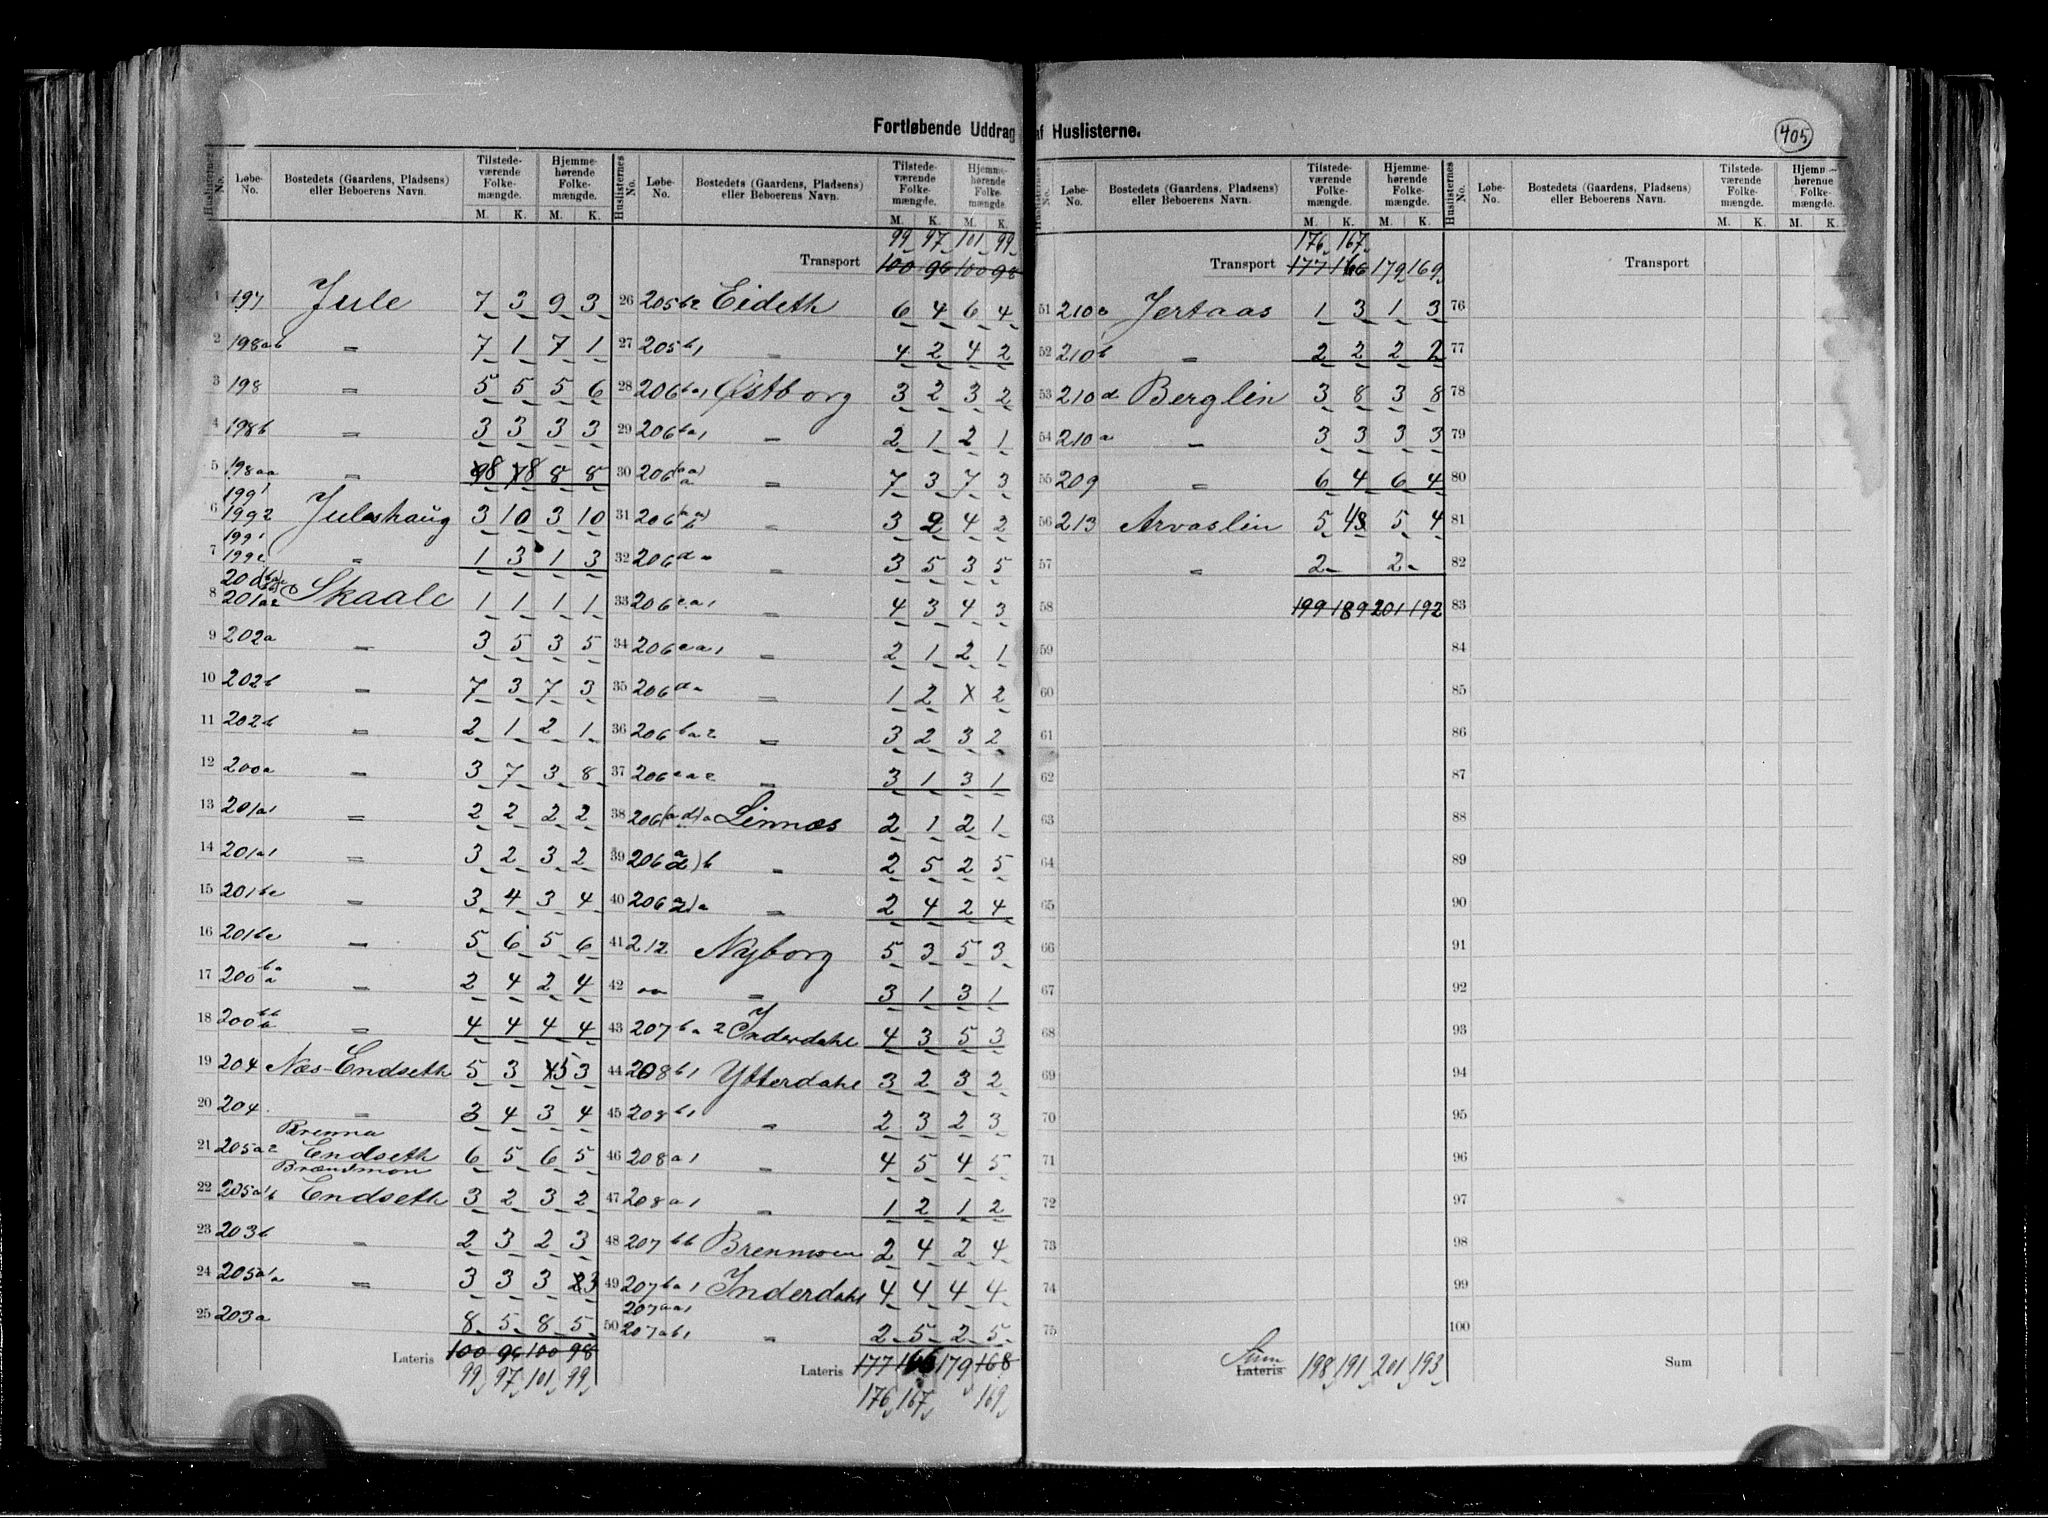 Fortløbende Uddrag af Huslisterne.
405
Huslisternes No. Løbe-No. Bostedets (Gaardens, Pladsens) eller Beboerens Navn. Tilstedeværende Folkemængde. M. K. Hjemmehørende Folkemængde. M. K.
1 197 Jule 7 3 9 3
2 198ab " 7 1 7 1
3 198 " 5 5 5 6
4 198b " 3 3 3 3
5 198aa " 8 8 8 8
6 199¹ 199² Juleshaug 3 10 3 10
7 199¹ 199² " 1 3 1 3
8 201a2 Skaale 1 1 1 1
9 202a " 3 5 3 5
10 202b " 7 3 7 3
11 202b " 2 1 2 1
12 200a " 3 7 3 8
13 201a1 " 2 2 2 2
14 201a1 " 3 2 3 2
15 201bc " 3 4 3 4
16 201bc " 5 6 5 6
17 200 ba a " 2 4 2 4
18 200 bb a " 4 4 4 4
19 204 Næs-Endseth 5 3 5 3
20 204 " 3 4 3 4
21 205a2 Brenna Endseth 6 5 6 5
22 205a1b Brændmon Endseth 3 2 3 2
23 203b " 2 3 2 3
24 205a1a " 3 3 3 3
25 203a 8 5 8 5
Lateris 100 96 100 98
99 97 101 99
Huslisternes No. Løbe-No. Bostedets (Gaardens, Pladsens) eller Beboerens Navn. Tilstedeværende Folkemængde. M. K. Hjemmehørende Folkemængde. M. K.
99 97 101 99
Transport 100 96 100 98
26 205b2 Eideth 6 4 6 4
27 205b1 " 4 2 4 2
28 206ba1 Østborg 3 2 3 2
29 206ba1 " 2 1 2 1
30 206aa)a " 7 3 7 3
31 206aa)b " 3 2 4 2
32 206da " 3 5 3 5
33 206ca1 " 4 3 4 3
34 206ca1 " 2 1 2 1
35 206da " 1 2 x 2
36 206ba2 " 3 2 3 2
37 206ca2 " 3 1 3 1
38 206(ad)a Linnæs 2 1 2 1
39 206ad)b " 2 5 2 5
40 206ad)a " 2 4 2 4
41 212 Nyborg 5 3 5 3
42 " " 3 1 3 1
43 207ba2 Inderdahl 4 3 5 3
44 208b1 Ytterdahl 3 2 3 2
45 208b1 " 2 3 2 3
46 208a1 " 4 5 4 5
47 208a1 " 1 2 1 2
48 207bb Brennmoen 2 4 2 4
49 207ba1 Inderdahl 4 4 4 4
50 207aa1 207ab1 " 2 5 2 5
Lateris 177 166 179 168
176 167 169
Huslisternes No. Løbe-No. Bostedets (Gaardens, Pladsens) eller Beboerens Navn. Tilstedeværende Folkemængde. M. K. Hjemmehørende Folkemængde. M. K.
176 167
Transport 177 166 179 169
51 210c Jertaas 1 3 1 3
52 210b " 2 2 2 2
53 210d Berglin 3 8 3 8
54 210a " 3 3 3 3
55 209 " 6 4 6 4
56 213 Arvaslin 5 4 5 4
57 " 2 - 2 -
58 199 189 201 192
59
60
61
62
63
64
65
66
67
68
69
70
71
72
73
74
75
Sum Lateris 198 191 201 193
Huslisternes No. Løbe-No. Bostedets (Gaardens, Pladsens) eller Beboerens Navn. Tilstedeværende Folkemængde. M. K. Hjemmehørende Folkemængde. M. K.
Transport
76
77
78
79
80
81
82
83
84
85
86
87
88
89
90
91
92
93
94
95
96
97
98
99
100
Sum